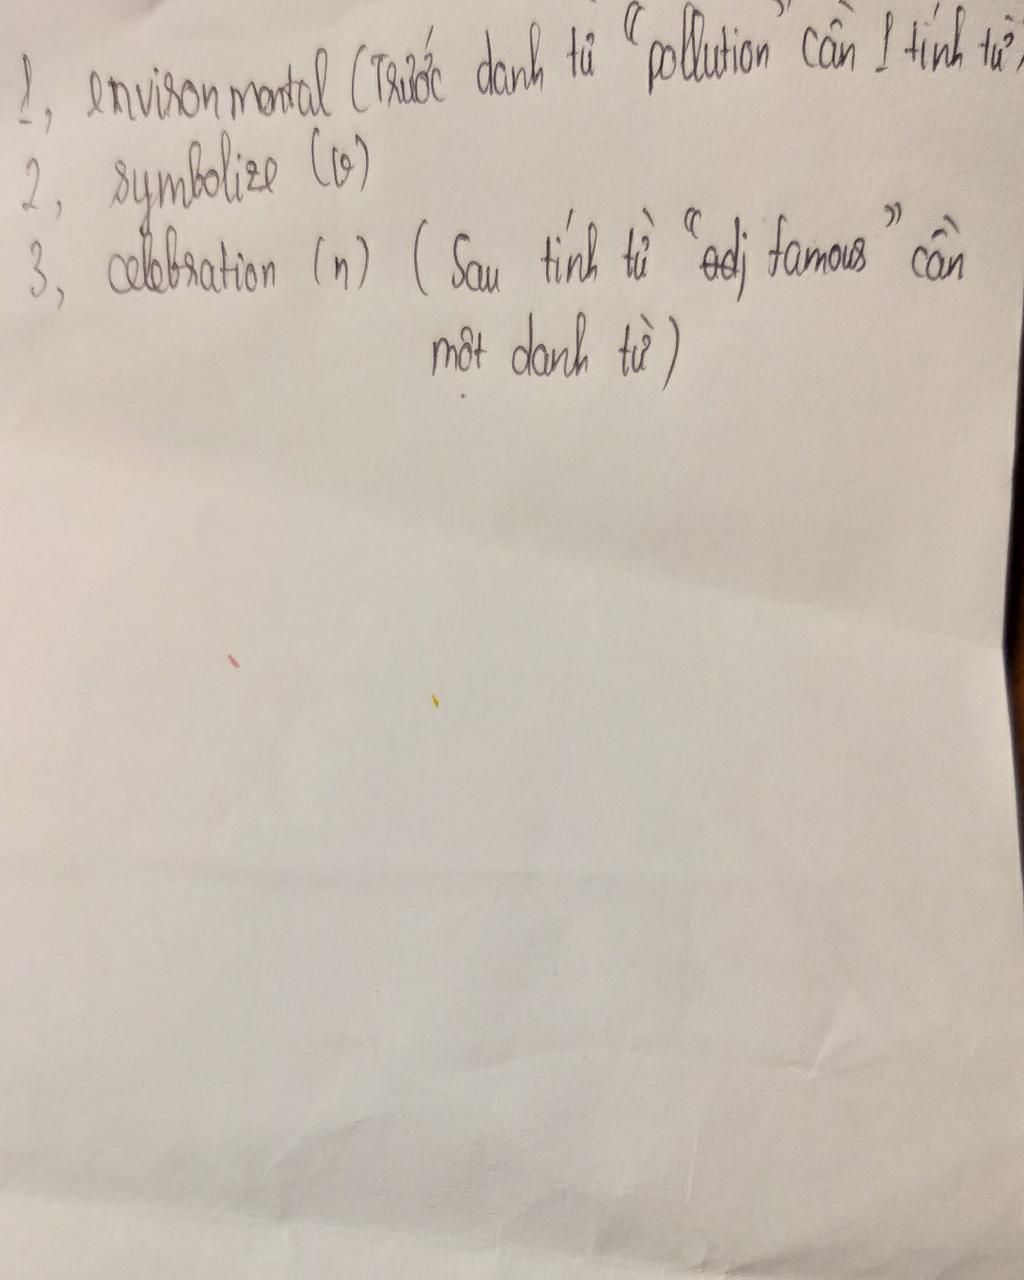 1, environmental (Trước danh từ “pollution” cần 1 tính từ)
2, symbolize (v)
3, celebration (n) (Sau tính từ “adj famous” cần
một danh từ)